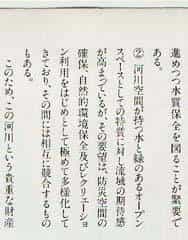 進めつつ水質保全を図ることが緊要で
ある。
② 河川空間が持つ水と緑のあるオープン
スペースとしての特質に対し流域の期待感
が高まっているが、その要望は、防災空間の
確保、自然的環境保全及びレクリェーショ
ン利用をはじめとして極めて多様化して
きており、その間には相互に競合するもの
もある。
このため、この河川という貴重な財産